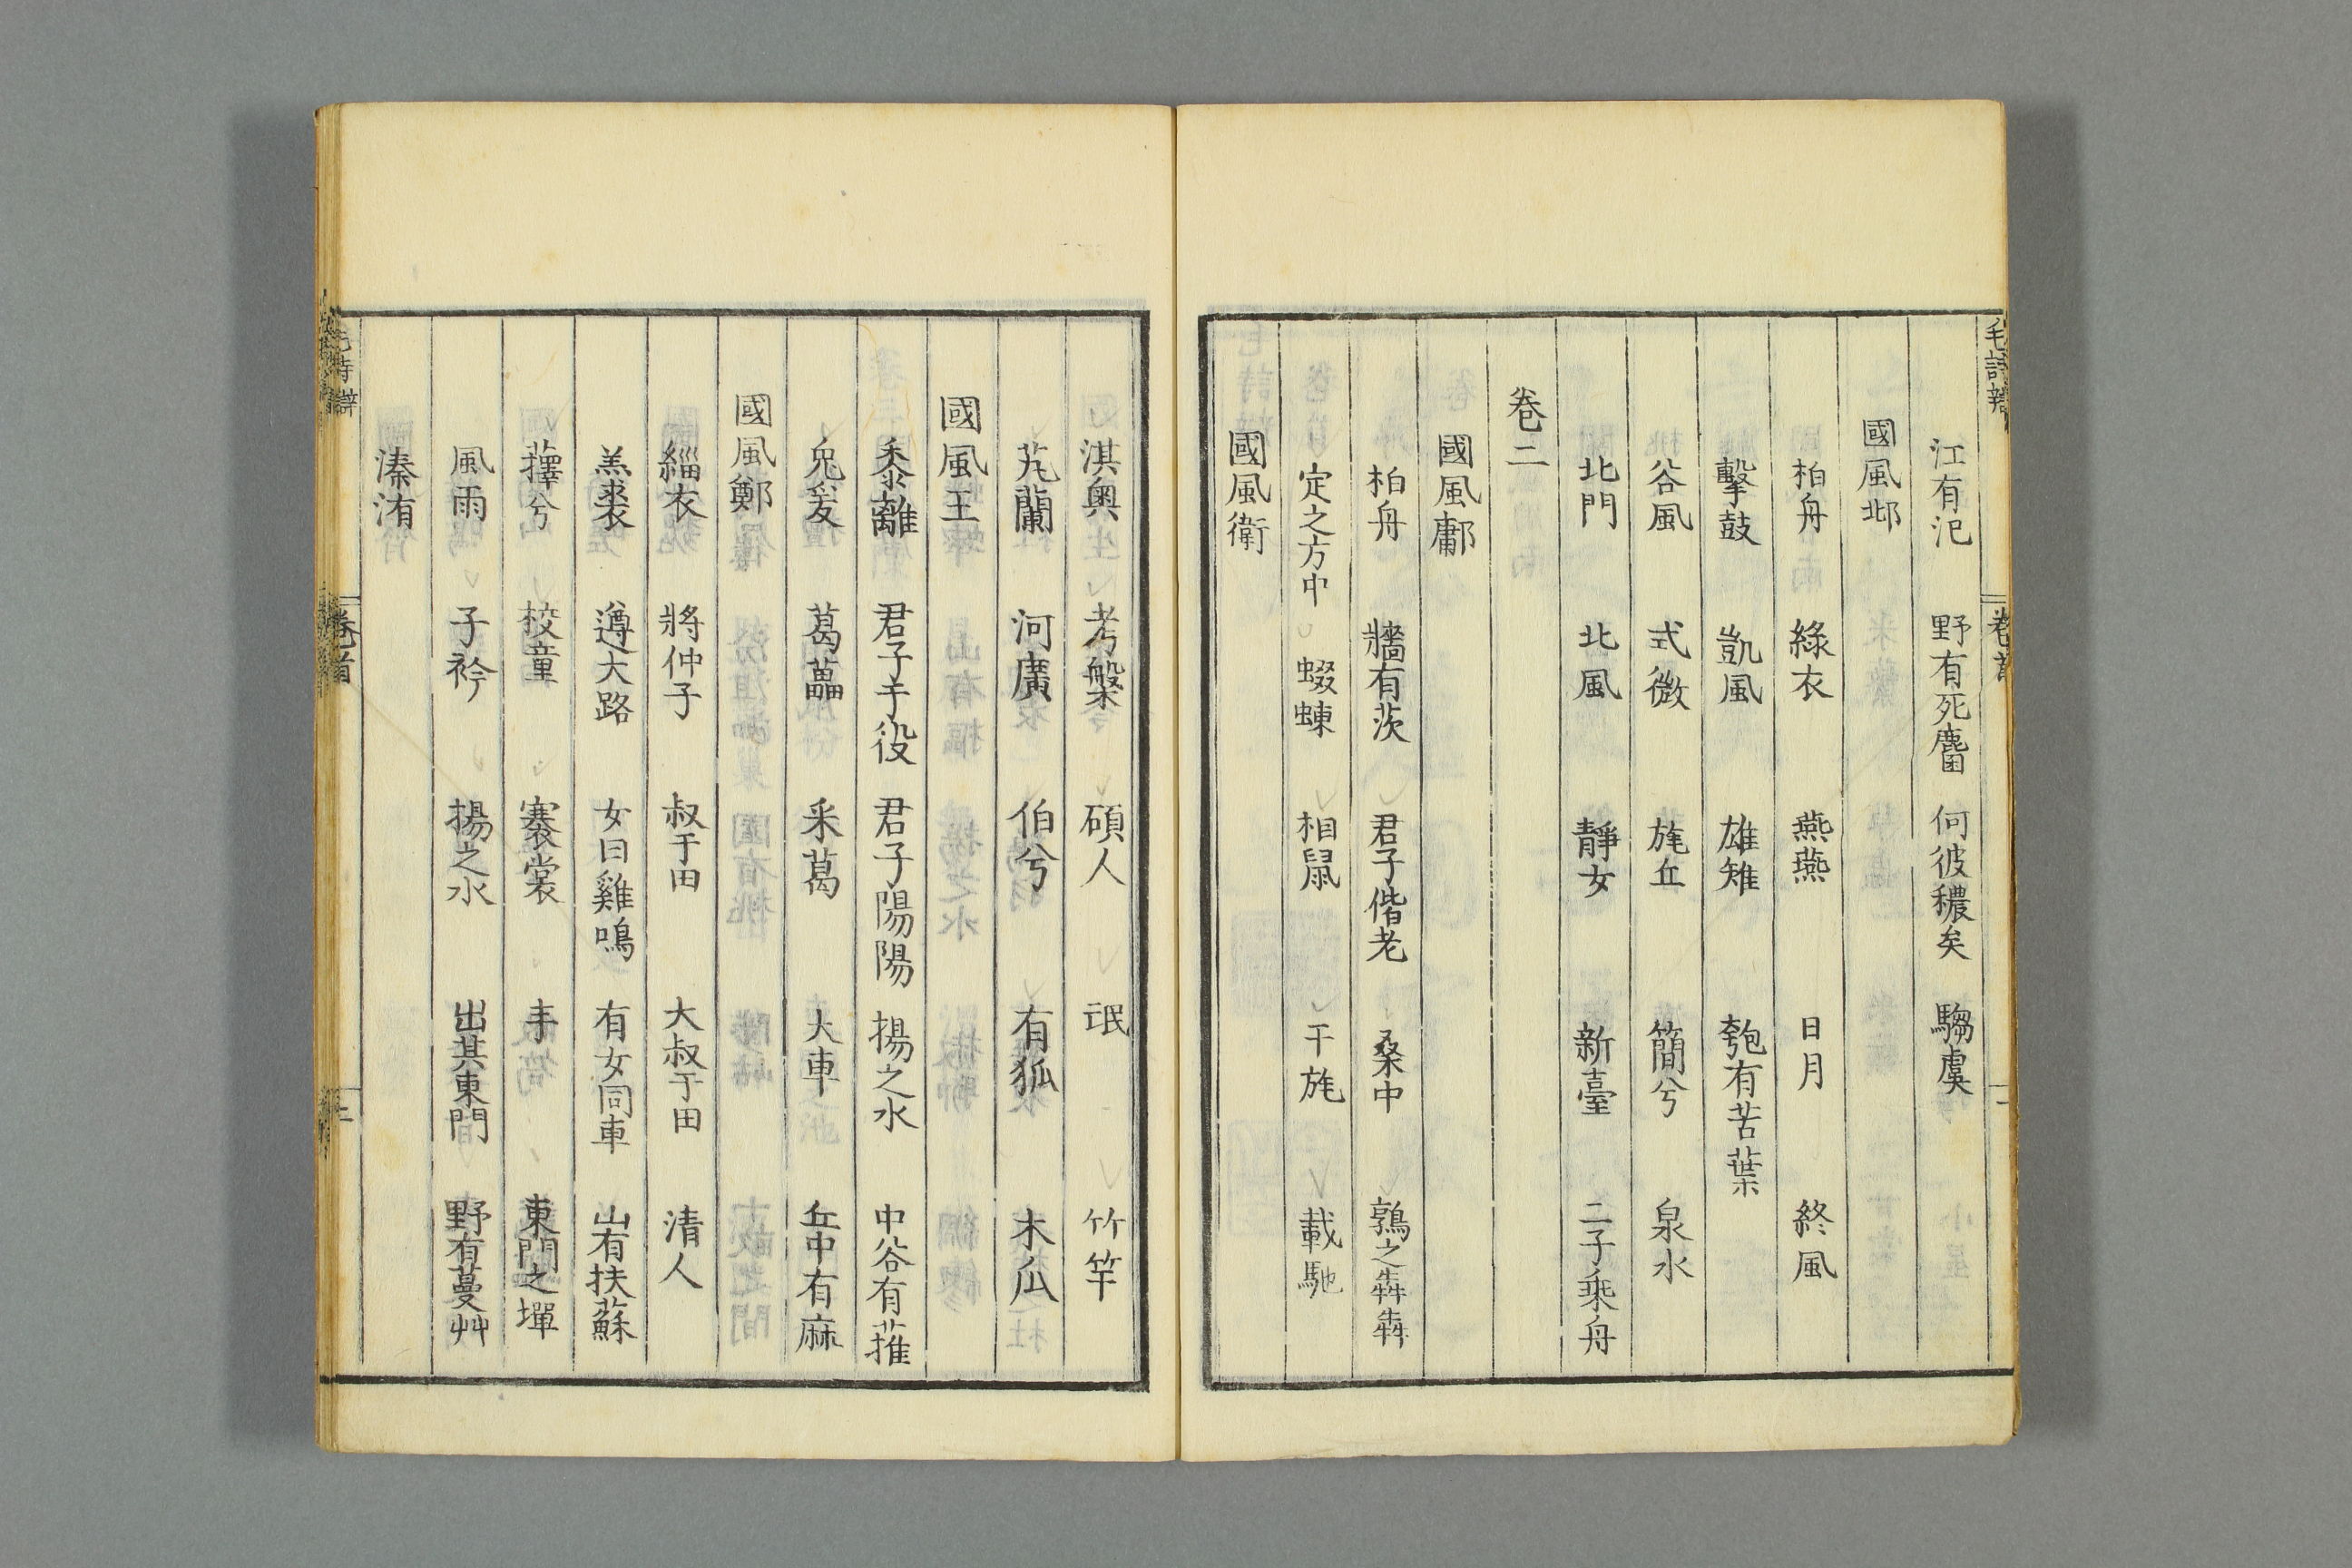 毛詩辨
卷首
江有汜 野有死麕 何彼穠矣 騶虞
國風邶
柏舟 綠衣 燕燕 日月 終風
擊鼓 凱風 雄雉 匏有苦葉
谷風 式微 旄丘 簡兮 泉水
北門 北風 靜女 新臺 二子乘舟
卷二
國風鄘
柏舟 牆有茨 君子偕老 桑中 鶉之犇犇
定之方中 蝃蝀 相鼠 干旄 載馳
國風衛
淇奧 考槃 碩人 氓 竹竿
芄蘭 河廣 伯兮 有狐 木瓜
國風王
黍離 君子于役 君子陽陽 揚之水 中谷有蓷
兔爰 葛藟 采葛 大車 丘中有麻
國風鄭
緇衣 將仲子 叔于田 大叔于田 清人
羔裘 遵大路 女曰雞鳴 有女同車 山有扶蘇
蘀兮 狡童 褰裳 丰 東門之墠
風雨 子衿 揚之水 出其東門 野有蔓艸
溱洧
毛詩辨
卷首